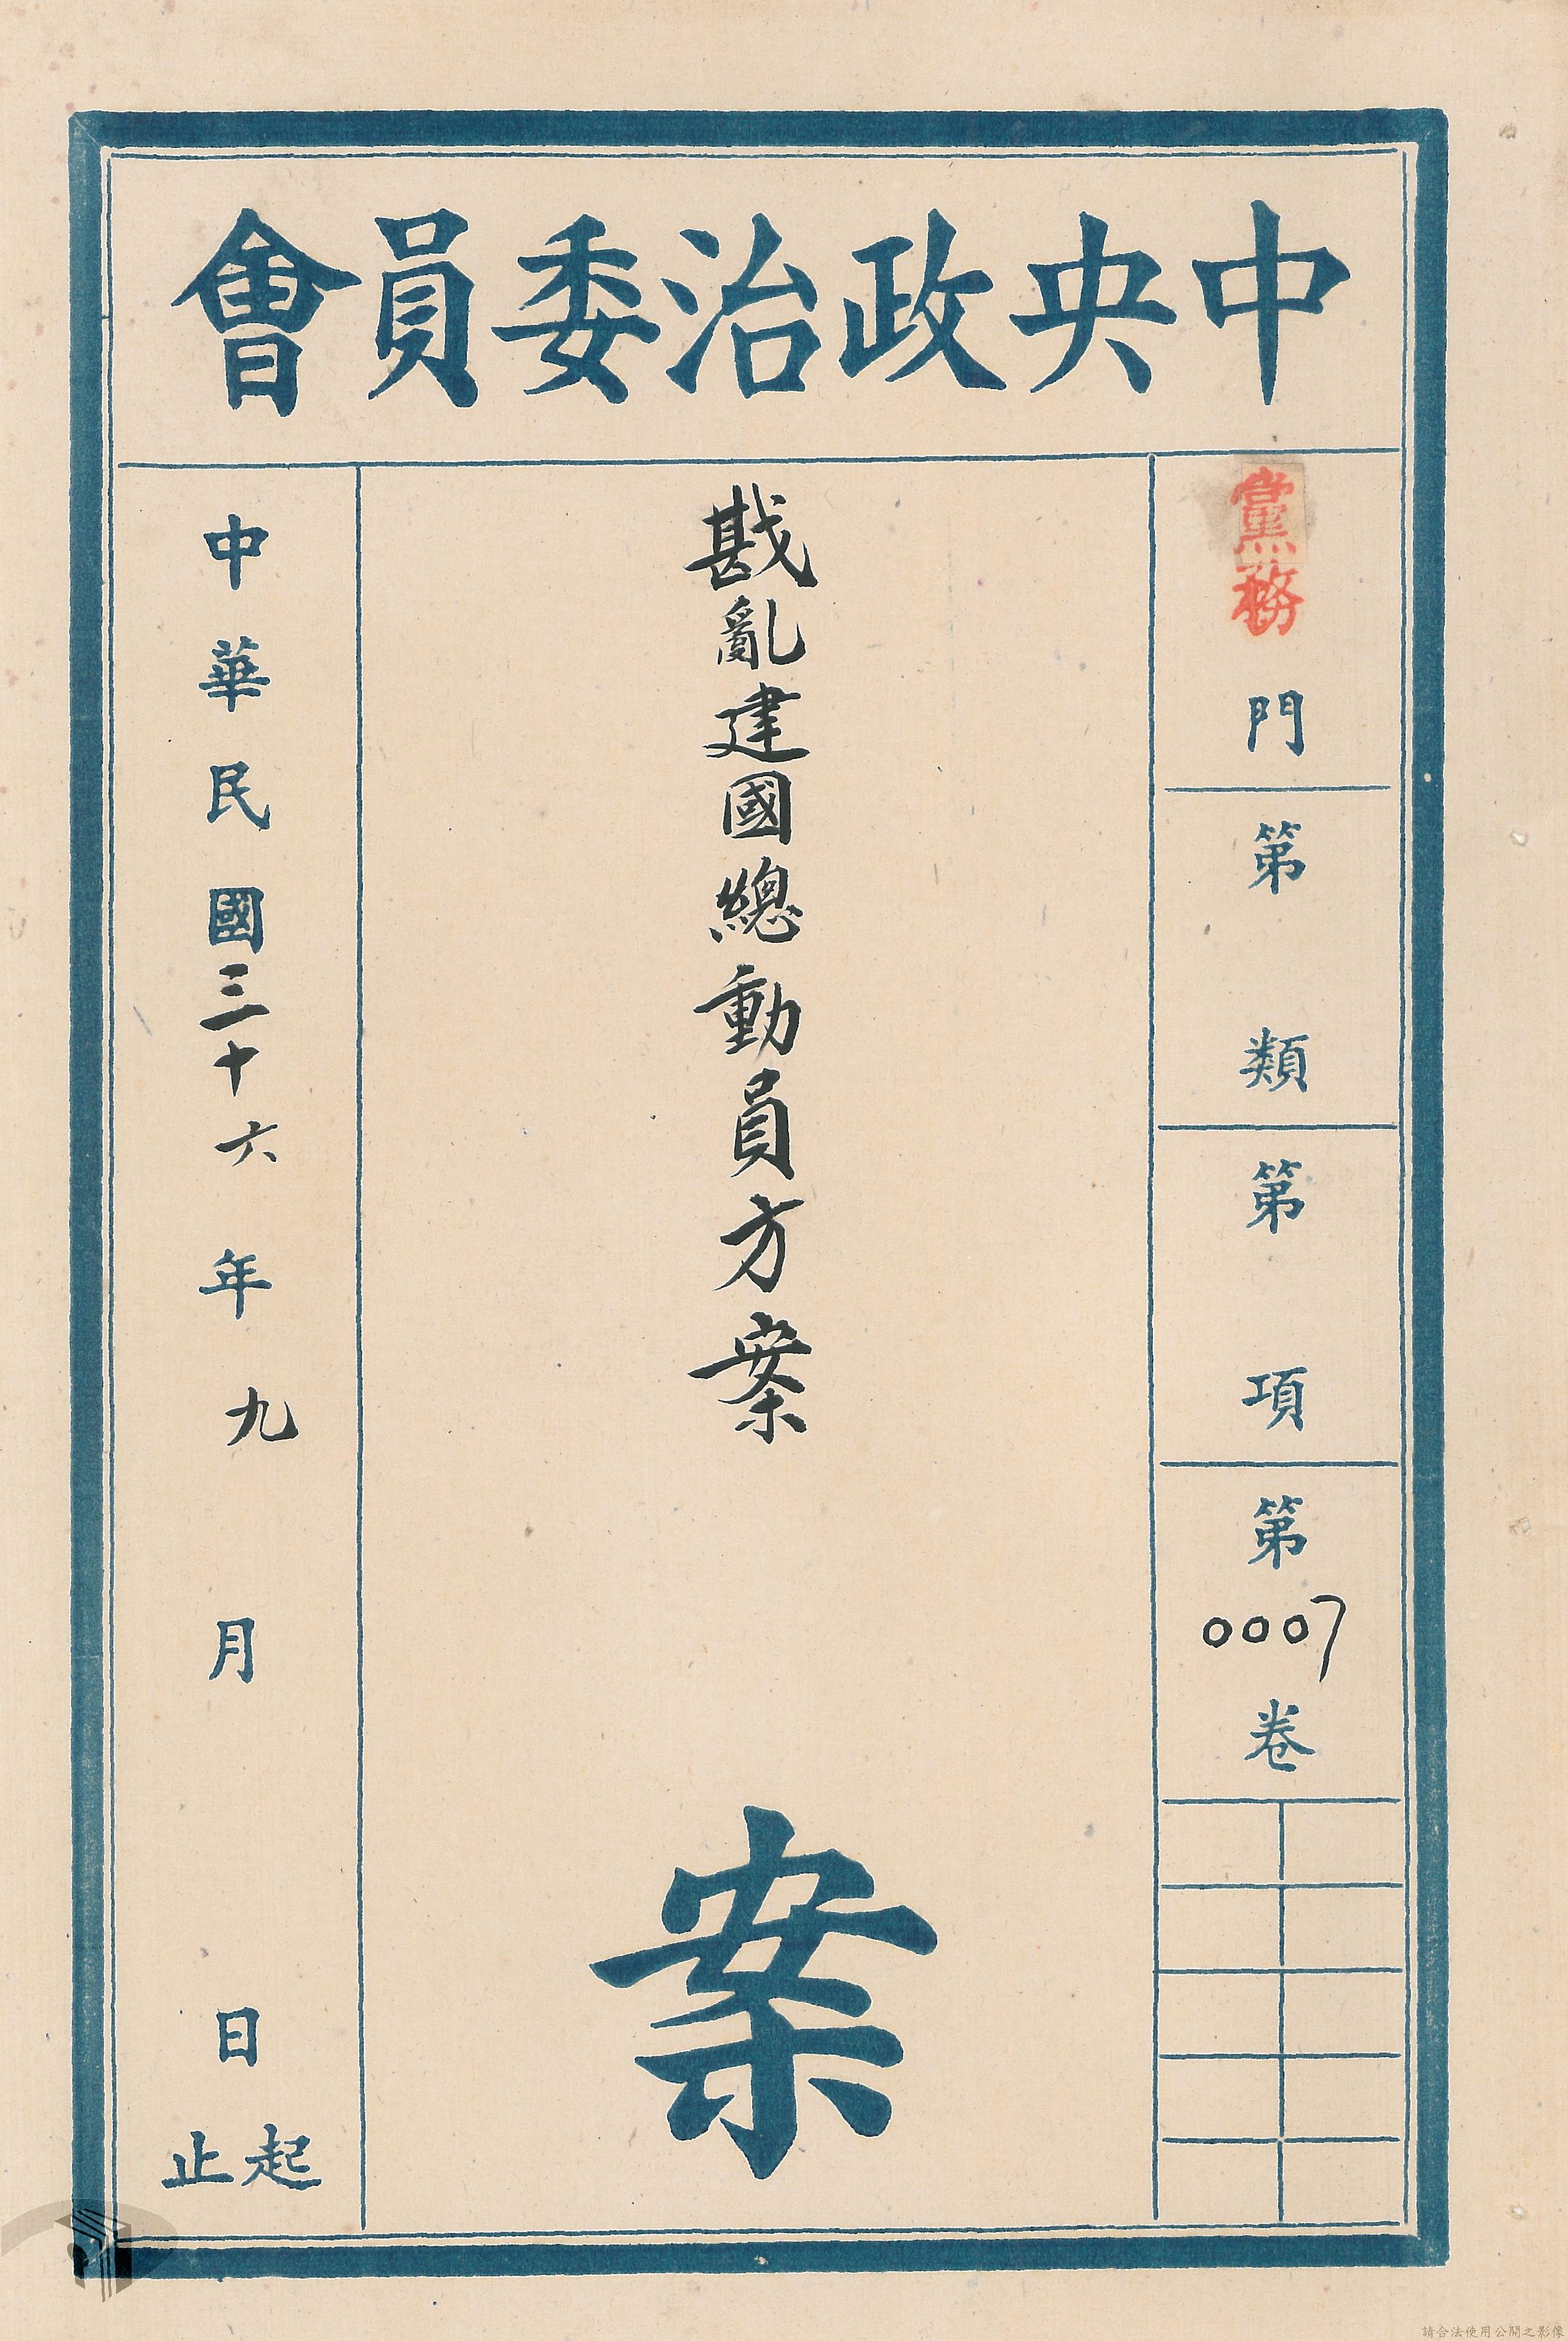 中央政治委員會
黨務門
第 類
第 項
第0007卷
戡亂建國總動員方案
案
中華民國三十六年九月 日起止
請合法使用公開之影像